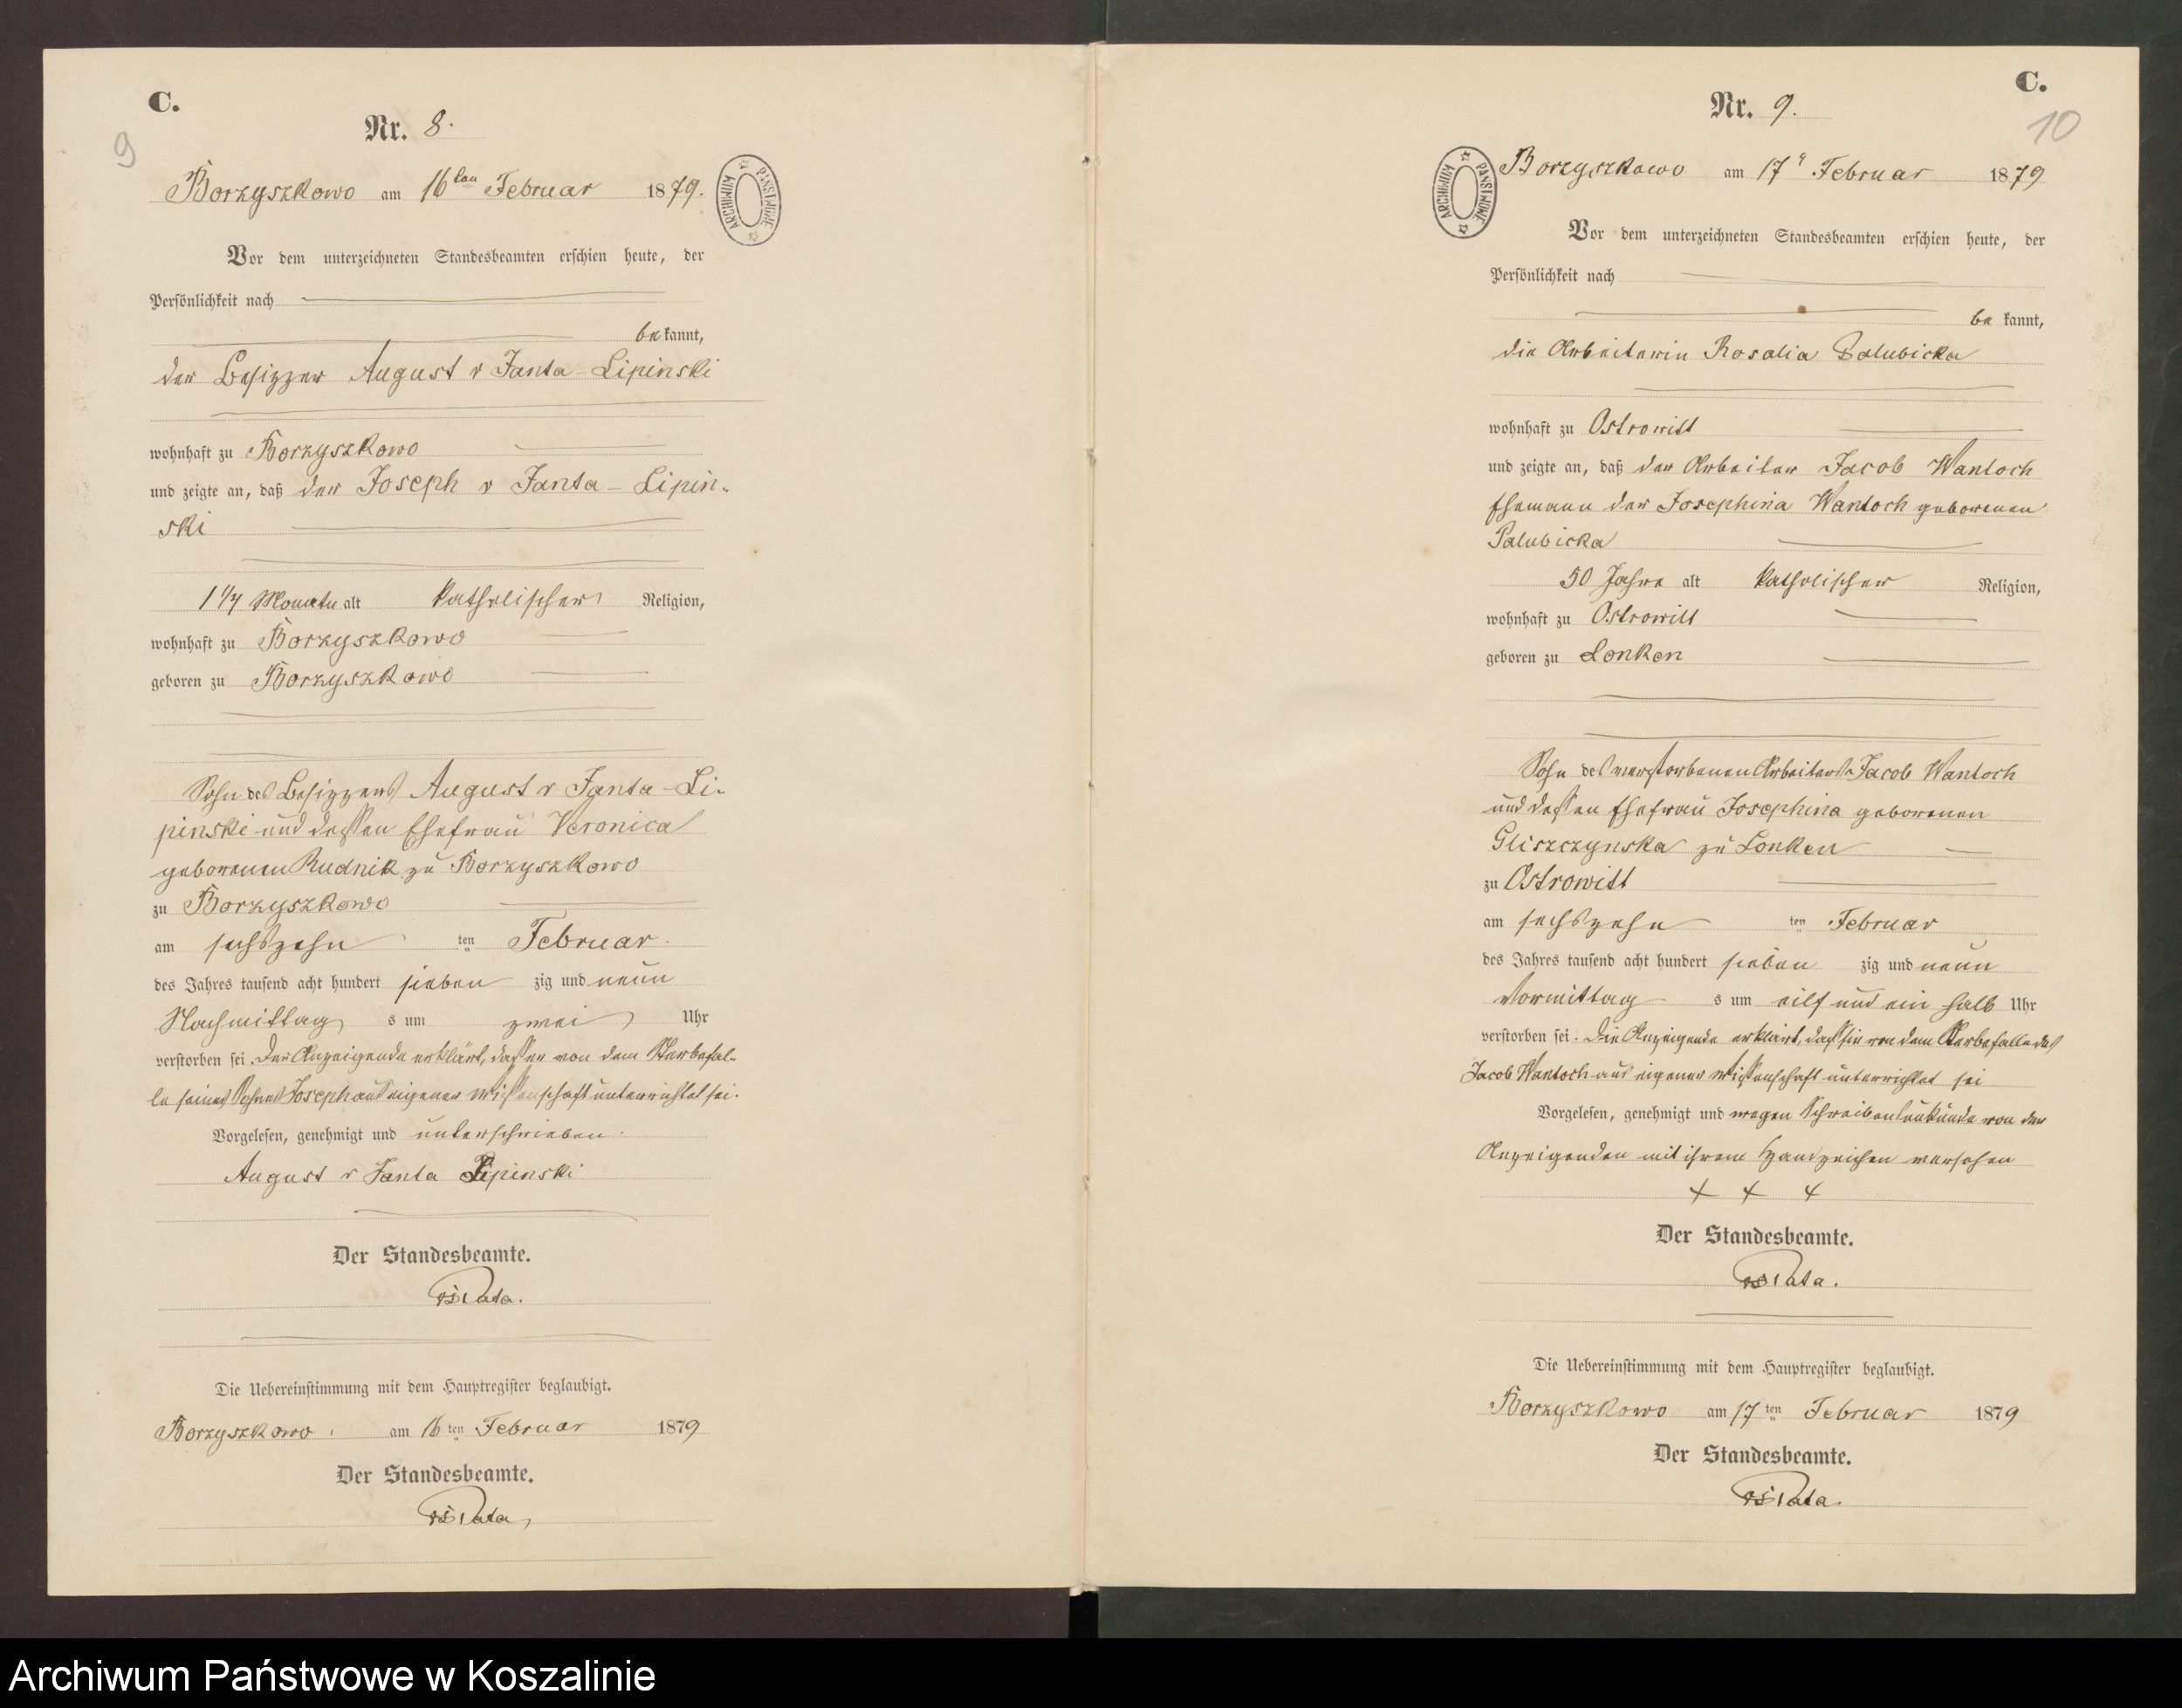 C.
9
Nr. 8.
Borzyszkowo am 16ten Februar 1879.
ARCHIWUM PAŃSTWOWE
Vor dem unterzeichneten Standesbeamten erschien heute, der
Persönlichkeit nach
bekannt,
der Besitzer August v Janta-Lipinski
wohnhaft zu Borzyszkowo
und zeigte an, daß der Joseph v Janta-Lipin-
ski
1 1/4 Monate alt katholischer Religion,
wohnhaft zu Borzyszkowo
geboren zu Borzyszkowo
Sohn des Besitzers August v Janta-Li-
pinski und dessen Ehefrau Veronica
geborenen Rudnik zu Borzyszkowo
zu Borzyszkowo
am sechszehn ten Februar
des Jahres tausend acht hundert sieben zig und neun
Nachmittag s um zwei Uhr
verstorben sei. Der Anzeigende erklärt, dass er von dem Sterbefal-
le seines Sohnes Joseph aus eigener Wissenschaft unterrichtet sei.
Vorgelesen, genehmigt und unterschrieben.
August v Janta Lipinski
Der Standesbeamte.
Die Uebereinstimmung mit dem Hauptregister beglaubigt.
Borzyszkowo am 16 ten Februar 1879
Der Standesbeamte.
C.
10
Nr. 9.
ARCHIWUM PAŃSTWOWE
Borzyszkowo am 17 Februar 1879
Vor dem unterzeichneten Standesbeamten erschien heute, der
Persönlichkeit nach
be kannt,
die Arbeiterin Rosalia Palubicka
wohnhaft zu Ostrowitt
und zeigte an, daß der Arbeiter Jacob Wantoch
Ehemann der Josephina Wantoch geborenen
Palubicka
50 Jahre alt katholischer Religion,
wohnhaft zu Ostrowitt
geboren zu Lonken
Sohn des verstorbenen Arbeiters Jacob Wantoch
und dessen Ehefrau Josephina geborenen
Gliszczynska zu Lonken
zu Ostrowitt
am sechszehn ten Februar
des Jahres tausend acht hundert sieben zig und neun
Vormittag s um eilf und ein halb Uhr
verstorben sei. Die Anzeigende erklärt, daß sie von dem Sterbefalle des
Jacob Wantoch aus eigener Wissenschaft unterrichtet sei
Vorgelesen, genehmigt und wegen Schreibensunkunde von der
Anzeigenden mit ihrem Handzeichen versehen
+ + +
Der Standesbeamte.
Die Uebereinstimmung mit dem Hauptregister beglaubigt.
Borzyszkowo am 17 ten Februar 1879
Der Standesbeamte.
Archiwum Państwowe w Koszalinie